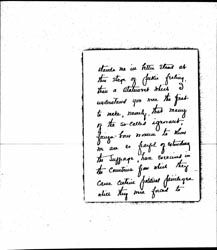 stands me in better stead at
this stage of public feeling,
than a statement which I
understand you were the first
to make, namely, that many
of the so-called ignorant
foreign born women to whom
we are so fearful of extending
the suffrage, have exercised in
the countries from which they
came certain political privileges
which they are forced to